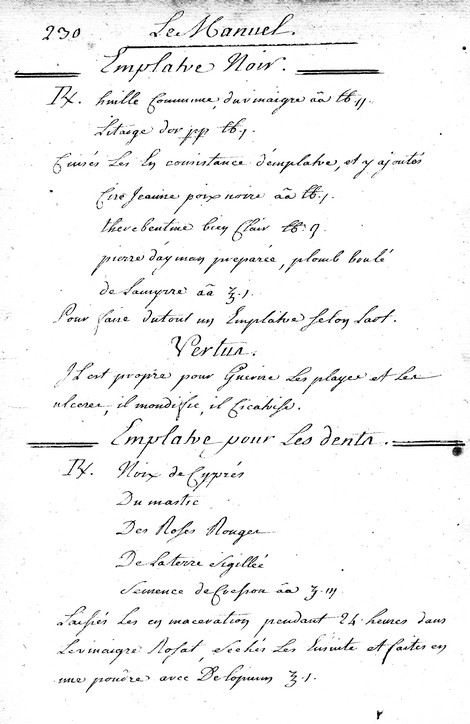 230 Le Manuel.
Emplatre Noir.
℞. huille Commune, du vinaigre āā ℔ ij.
Litarge dor ppp ℔ j.
Cuisés Les En consistance d'emplatre, et y ajoutés
Cire Jeaune poix noire āā ℔ j.
therebentine bien Clair ℔
pierre dayman preparée, plomb boulé
de Lamyrre āā ℥ 1.
Pour faire du tout un Emplatre selon Lart.
Vertus.
Il est propre pour Guerire Les playes et Les
ulceres, il mondifie, il Cicatrise.
Emplatre pour Les dents.
℞. Noix de Cyprés
Du mastic
Des Roses Rouges
De La terre Sigillée
Semence de Cresson āā ʒ iij
Laissés Les en maceration pendant 24 heures dans
Le vinaigre Rosat, sechés Les Ensuite et faites en
une poudre avec De Lopium ʒ 1.